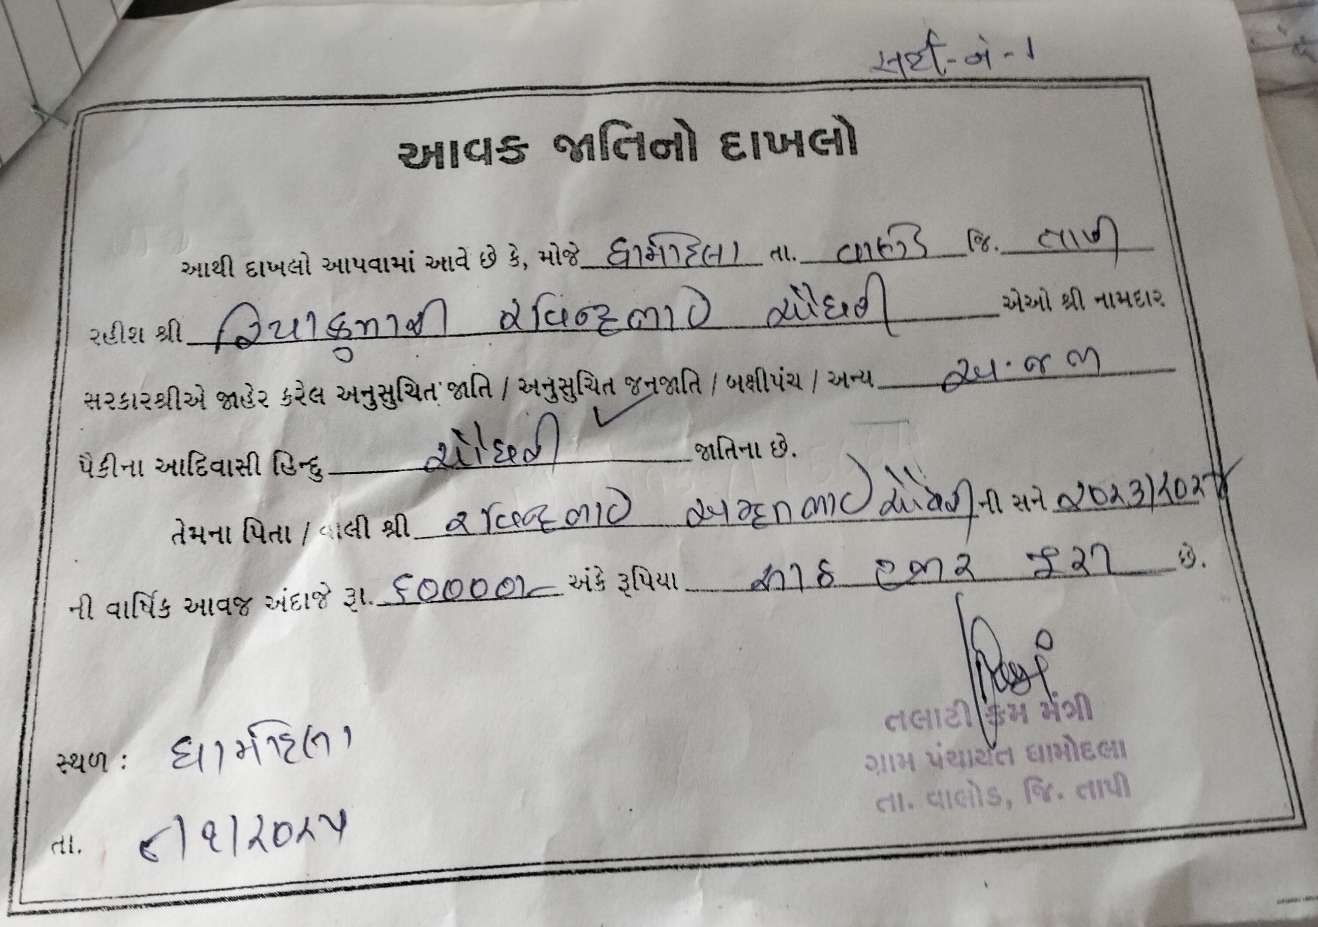 સર્ટી-બે-૧
આવક જાતિનો દાખલો
આથી દાખલો આપવામાં આવે છે કે, મોજે ધામોદલા તા. વાલોડ જિ. તાપી
રહીશ શ્રી રિયાકુમારી રવિન્દ્રભાઇ ચૌધરી એઓ શ્રી નામદાર
સરકારશ્રીએ જાહેર કરેલ અનુસુચિત જાતિ / અનુસુચિત જનજાતિ / બક્ષીપંચ / અન્ય અ.જ.જા
પૈકીના આદિવાસી હિન્દુ ચૌધરી જાતિના છે.
તેમના પિતા / વાલી શ્રી રવિન્દ્રભાઇ ચૌધરી ની સને ૨૦૨૩/૨૦૨૪
ની વાર્ષિક આવજ અંદાજે રૂા. ૬૦૦૦૦/- અંકે રૂપિયા સાઠ હજાર પુરા છે.
તલાટી કમ મંત્રી
ગ્રામ પંચાયત ધામોદલા
તા. વાલોડ, જિ. તાપી
સ્થળ : ધામોદલા
તા. ૮/૧/૨૦૨૫